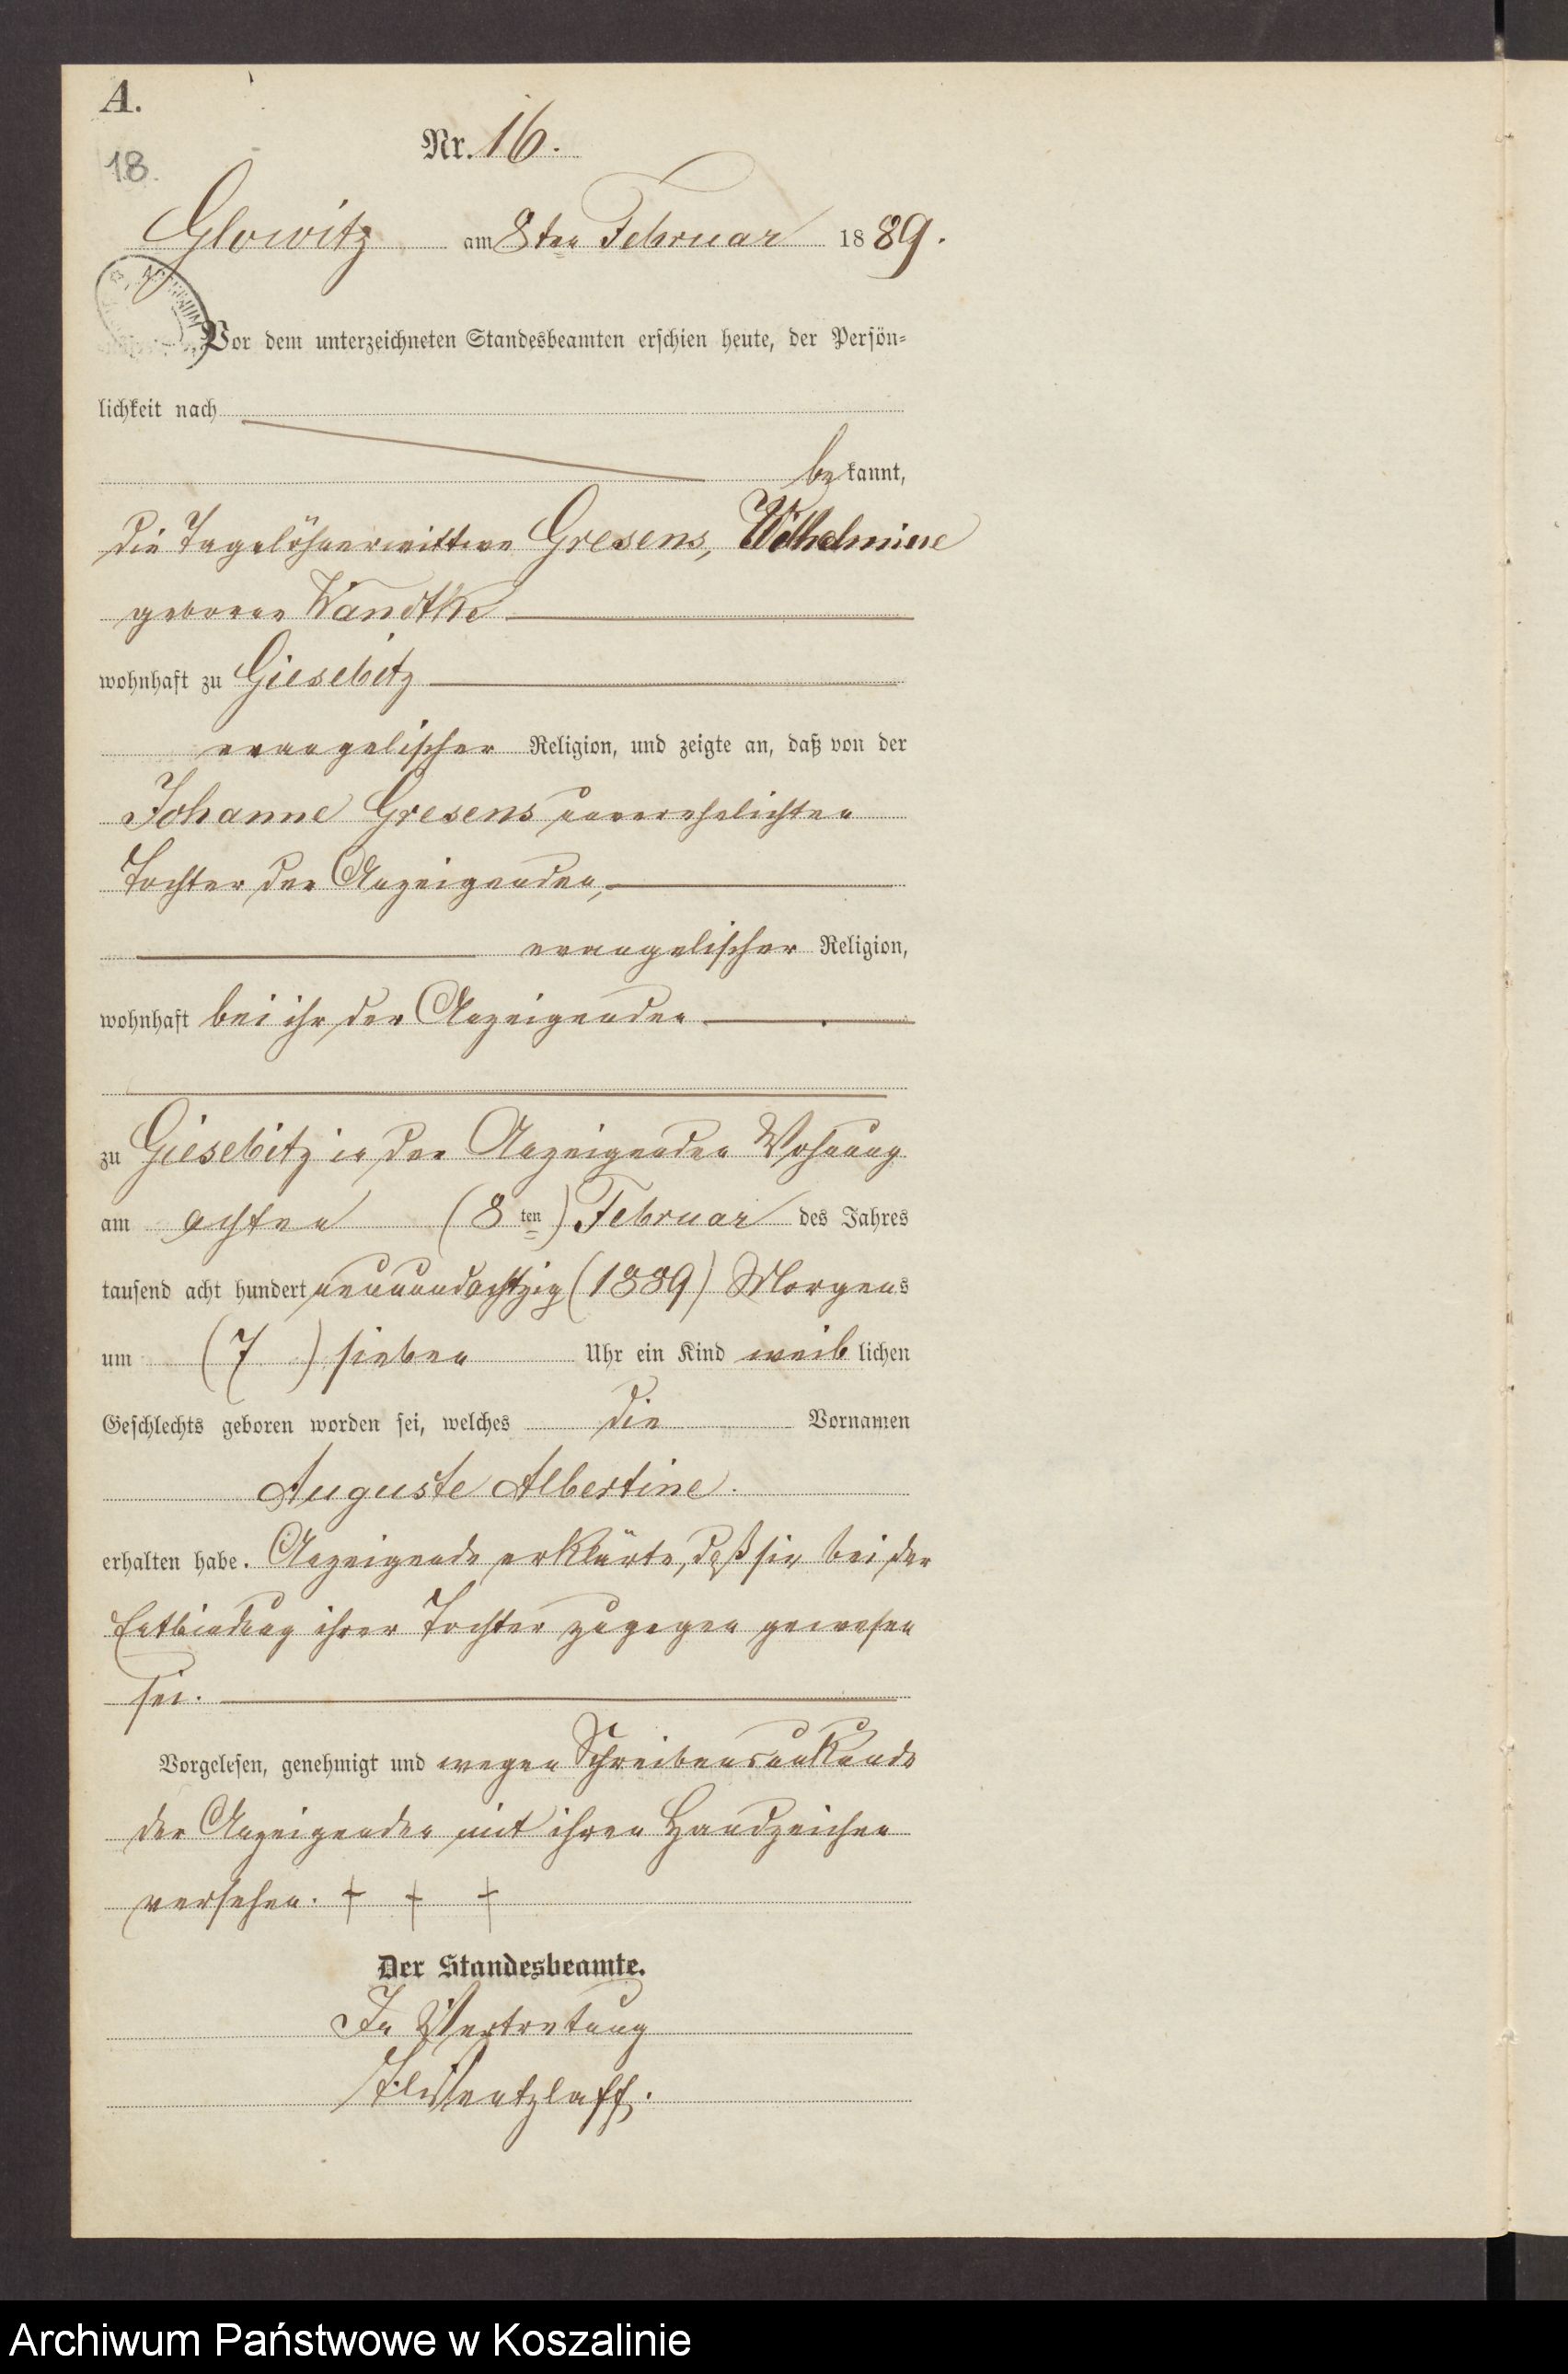 A.
Nr. 16.
18.
Glowitz am 8ten Februar 1889.
Vor dem unterzeichneten Standesbeamten erschien heute, der Persön-
lichkeit nach
bekannt,
die Tagelöhnerwittwe Gresens, Wilhelmine
geborne Wandtke
wohnhaft zu Giesebitz
evangelischer Religion, und zeigte an, daß von der
Johanne Gresens unverehelichten
Tochter der Anzeigenden,
evangelischer Religion,
wohnhaft bei ihr der Anzeigenden
zu Giesebitz in der Anzeigenden Wohnung
am achten (8ten) Februar des Jahres
tausend acht hundert neunundachtzig (1889) Morgens
um (7) sieben Uhr ein Kind weiblichen
Geschlechts geboren worden sei, welches die Vornamen
Auguste Albertine.
erhalten habe. Anzeigende erklärte, daß sie bei der
Entbindung ihrer Tochter zugegen gewesen
sei.
Vorgelesen, genehmigt und wegen Schreibensunkunde
der Anzeigenden mit ihren Handzeichen
versehen. + + +
Der Standesbeamte.
In Vertretung
Archiwum Państwowe w Koszalinie